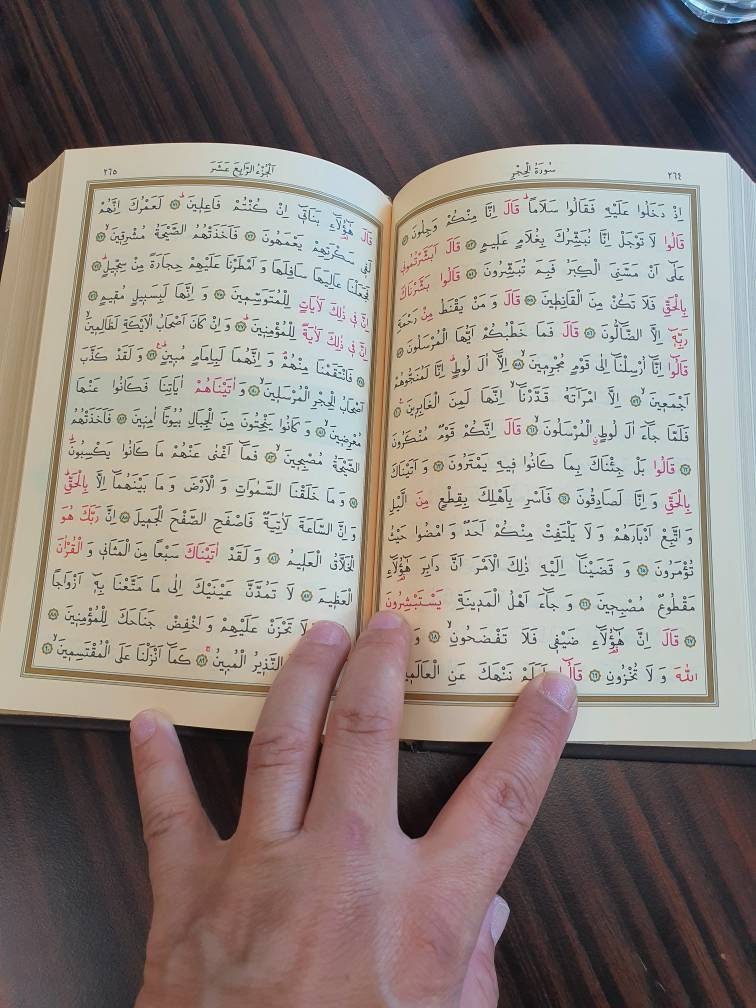 ٢٦٤
سُورَةُ الْحِجْرِ
اِذْ دَخَلُوا عَلَيْهِ فَقَالُوا سَلَامًاۜ قَالَ اِنَّا مِنْكُمْ وَجِلُونَ ﴿٥٢﴾
قَالُوا لَا تَوْجَلْ اِنَّا نُبَشِّرُكَ بِغُلَامٍ عَل۪يمٍ ﴿٥٣﴾ قَالَ اَبَشَّرْتُمُون۪ي
عَلٰٓى اَنْ مَسَّنِيَ الْكِبَرُ فَبِمَ تُبَشِّرُونَ ﴿٥٤﴾ قَالُوا بَشَّرْنَاكَ
بِالْحَقِّ فَلَا تَكُنْ مِنَ الْقَانِط۪ينَ ﴿٥٥﴾ قَالَ وَ مَنْ يَقْنَطُ مِنْ رَحْمَةِ
رَبِّه۪ٓ اِلَّا الضَّٓالُّونَ ﴿٥٦﴾ قَالَ فَمَا خَطْبُكُمْ اَيُّهَا الْمُرْسَلُونَ ﴿٥٧﴾
قَالُٓوا اِنَّٓا اُرْسِلْنَٓا اِلٰى قَوْمٍ مُجْرِم۪ينَۙ ﴿٥٨﴾ اِلَّٓا اٰلَ لُوطٍۜ اِنَّا لَمُنَجُّوهُمْ
اَجْمَع۪ينَۙ ﴿٥٩﴾ اِلَّا امْرَاَتَهُ قَدَّرْنَٓاۙ اِنَّهَا لَمِنَ الْغَابِر۪ينَ ﴿٦٠﴾
فَلَمَّا جَٓاءَ اٰلَ لُوطٍۨ الْمُرْسَلُونَۙ ﴿٦١﴾ قَالَ اِنَّكُمْ قَوْمٌ مُنْكَرُونَ
﴿٦٢﴾ قَالُوا بَلْ جِئْنَاكَ بِمَا كَانُوا ف۪يهِ يَمْتَرُونَ ﴿٦٣﴾ وَ اَتَيْنَاكَ
بِالْحَقِّ وَ اِنَّا لَصَادِقُونَ ﴿٦٤﴾ فَاَسْرِ بِاَهْلِكَ بِقِطْعٍ مِنَ الَّيْلِ
وَ اتَّبِعْ اَدْبَارَهُمْ وَ لَا يَلْتَفِتْ مِنْكُمْ اَحَدٌ وَ امْضُوا حَيْثُ
تُؤْمَرُونَ ﴿٦٥﴾ وَ قَضَيْنَٓا اِلَيْهِ ذٰلِكَ الْاَمْرَ اَنَّ دَابِرَ هٰٓؤُ۬لَٓاءِ
مَقْطُوعٌ مُصْبِح۪ينَ ﴿٦٦﴾ وَ جَٓاءَ اَهْلُ الْمَد۪ينَةِ يَسْتَبْشِرُونَ
﴿٦٧﴾ قَالَ اِنَّ هٰٓؤُ۬لَٓاءِ ضَيْف۪ي فَلَا تَفْضَحُونِۙ ﴿٦٨﴾ وَ
اللّٰهَ وَ لَا تُخْزُونِ ﴿٦٩﴾ قَالُٓوا اَوَلَمْ نَنْهَكَ عَنِ الْعَالَم۪ينَ
٢٦٥
اَلْجُزْءُ الرَّابِعَ عَشَرَ
قَالَ هٰٓؤُ۬لَٓاءِ بَنَات۪ٓي اِنْ كُنْتُمْ فَاعِل۪ينَۜ ﴿٧١﴾ لَعَمْرُكَ اِنَّهُمْ
لَف۪ي سَكْرَتِهِمْ يَعْمَهُونَ ﴿٧٢﴾ فَاَخَذَتْهُمُ الصَّيْحَةُ مُشْرِق۪ينَۙ ﴿٧٣﴾
فَجَعَلْنَا عَالِيَهَا سَافِلَهَا وَ اَمْطَرْنَا عَلَيْهِمْ حِجَارَةً مِنْ سِجّ۪يلٍۜ ﴿٧٤﴾
اِنَّ ف۪ي ذٰلِكَ لَاٰيَاتٍ لِلْمُتَوَسِّم۪ينَ ﴿٧٥﴾ وَ اِنَّهَا لَبِسَب۪يلٍ مُق۪يمٍ ﴿٧٦﴾
اِنَّ ف۪ي ذٰلِكَ لَاٰيَةً لِلْمُؤْمِن۪ينَۜ ﴿٧٧﴾ وَ اِنْ كَانَ اَصْحَابُ الْاَيْكَةِ لَظَالِم۪ينَۙ
﴿٧٨﴾ فَانْتَقَمْنَا مِنْهُمْۢ وَ اِنَّهُمَا لَبِاِمَامٍ مُب۪ينٍۜ ﴿٧٩﴾ وَ لَقَدْ كَذَّبَ
اَصْحَابُ الْحِجْرِ الْمُرْسَل۪ينَۙ ﴿٨٠﴾ وَ اٰتَيْنَاهُمْ اٰيَاتِنَا فَكَانُوا عَنْهَا
مُعْرِض۪ينَۙ ﴿٨١﴾ وَ كَانُوا يَنْحِتُونَ مِنَ الْجِبَالِ بُيُوتًا اٰمِن۪ينَ ﴿٨٢﴾ فَاَخَذَتْهُمُ
الصَّيْحَةُ مُصْبِح۪ينَۙ ﴿٨٣﴾ فَمَٓا اَغْنٰى عَنْهُمْ مَا كَانُوا يَكْسِبُونَۜ
﴿٨٤﴾ وَ مَا خَلَقْنَا السَّمٰوَاتِ وَ الْاَرْضَ وَ مَا بَيْنَهُمَٓا اِلَّا بِالْحَقِّۜ
وَ اِنَّ السَّاعَةَ لَاٰتِيَةٌ فَاصْفَحِ الصَّفْحَ الْجَم۪يلَ ﴿٨٥﴾ اِنَّ رَبَّكَ هُوَ
الْخَلَّاقُ الْعَل۪يمُ ﴿٨٦﴾ وَ لَقَدْ اٰتَيْنَاكَ سَبْعًا مِنَ الْمَثَان۪ي وَ الْقُرْاٰنَ
الْعَظ۪يمَ ﴿٨٧﴾ لَا تَمُدَّنَّ عَيْنَيْكَ اِلٰى مَا مَتَّعْنَا بِه۪ٓ اَزْوَاجًا
لَا تَحْزَنْ عَلَيْهِمْ وَ اخْفِضْ جَنَاحَكَ لِلْمُؤْمِن۪ينَ ﴿٨٨﴾
النَّذ۪يرُ الْمُب۪ينُۚ ﴿٨٩﴾ كَمَٓا اَنْزَلْنَا عَلَى الْمُقْتَسِم۪ينَۙ ﴿٩٠﴾